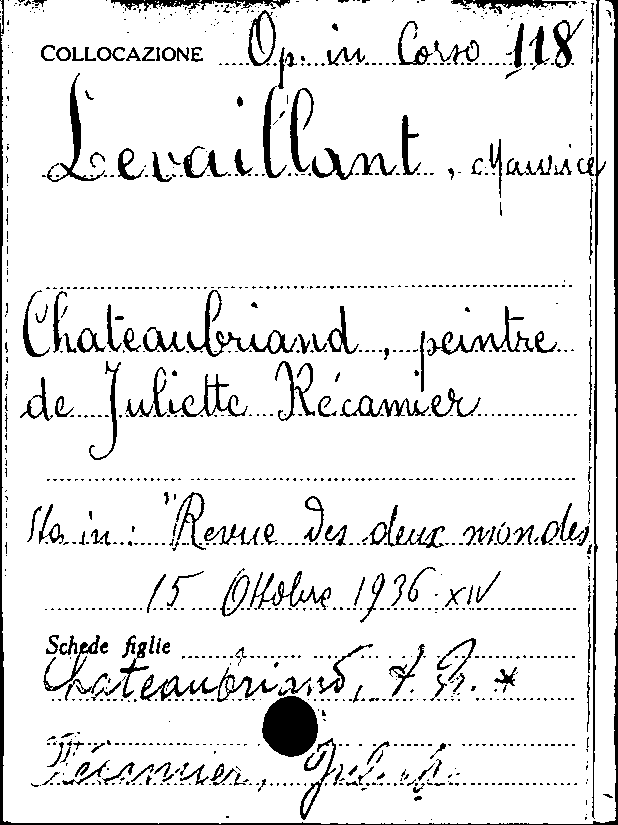 COLLOCAZIONE Op. in Corso 118
Levaillant, Maurice
Chateaubriand, peintre
de Juliette Récamier
Sta in: "Revue des deux mondes"
15 Ottobre 1936 · XIV
Schede figlie
Chateaubriand, F. R. *
Récamier,